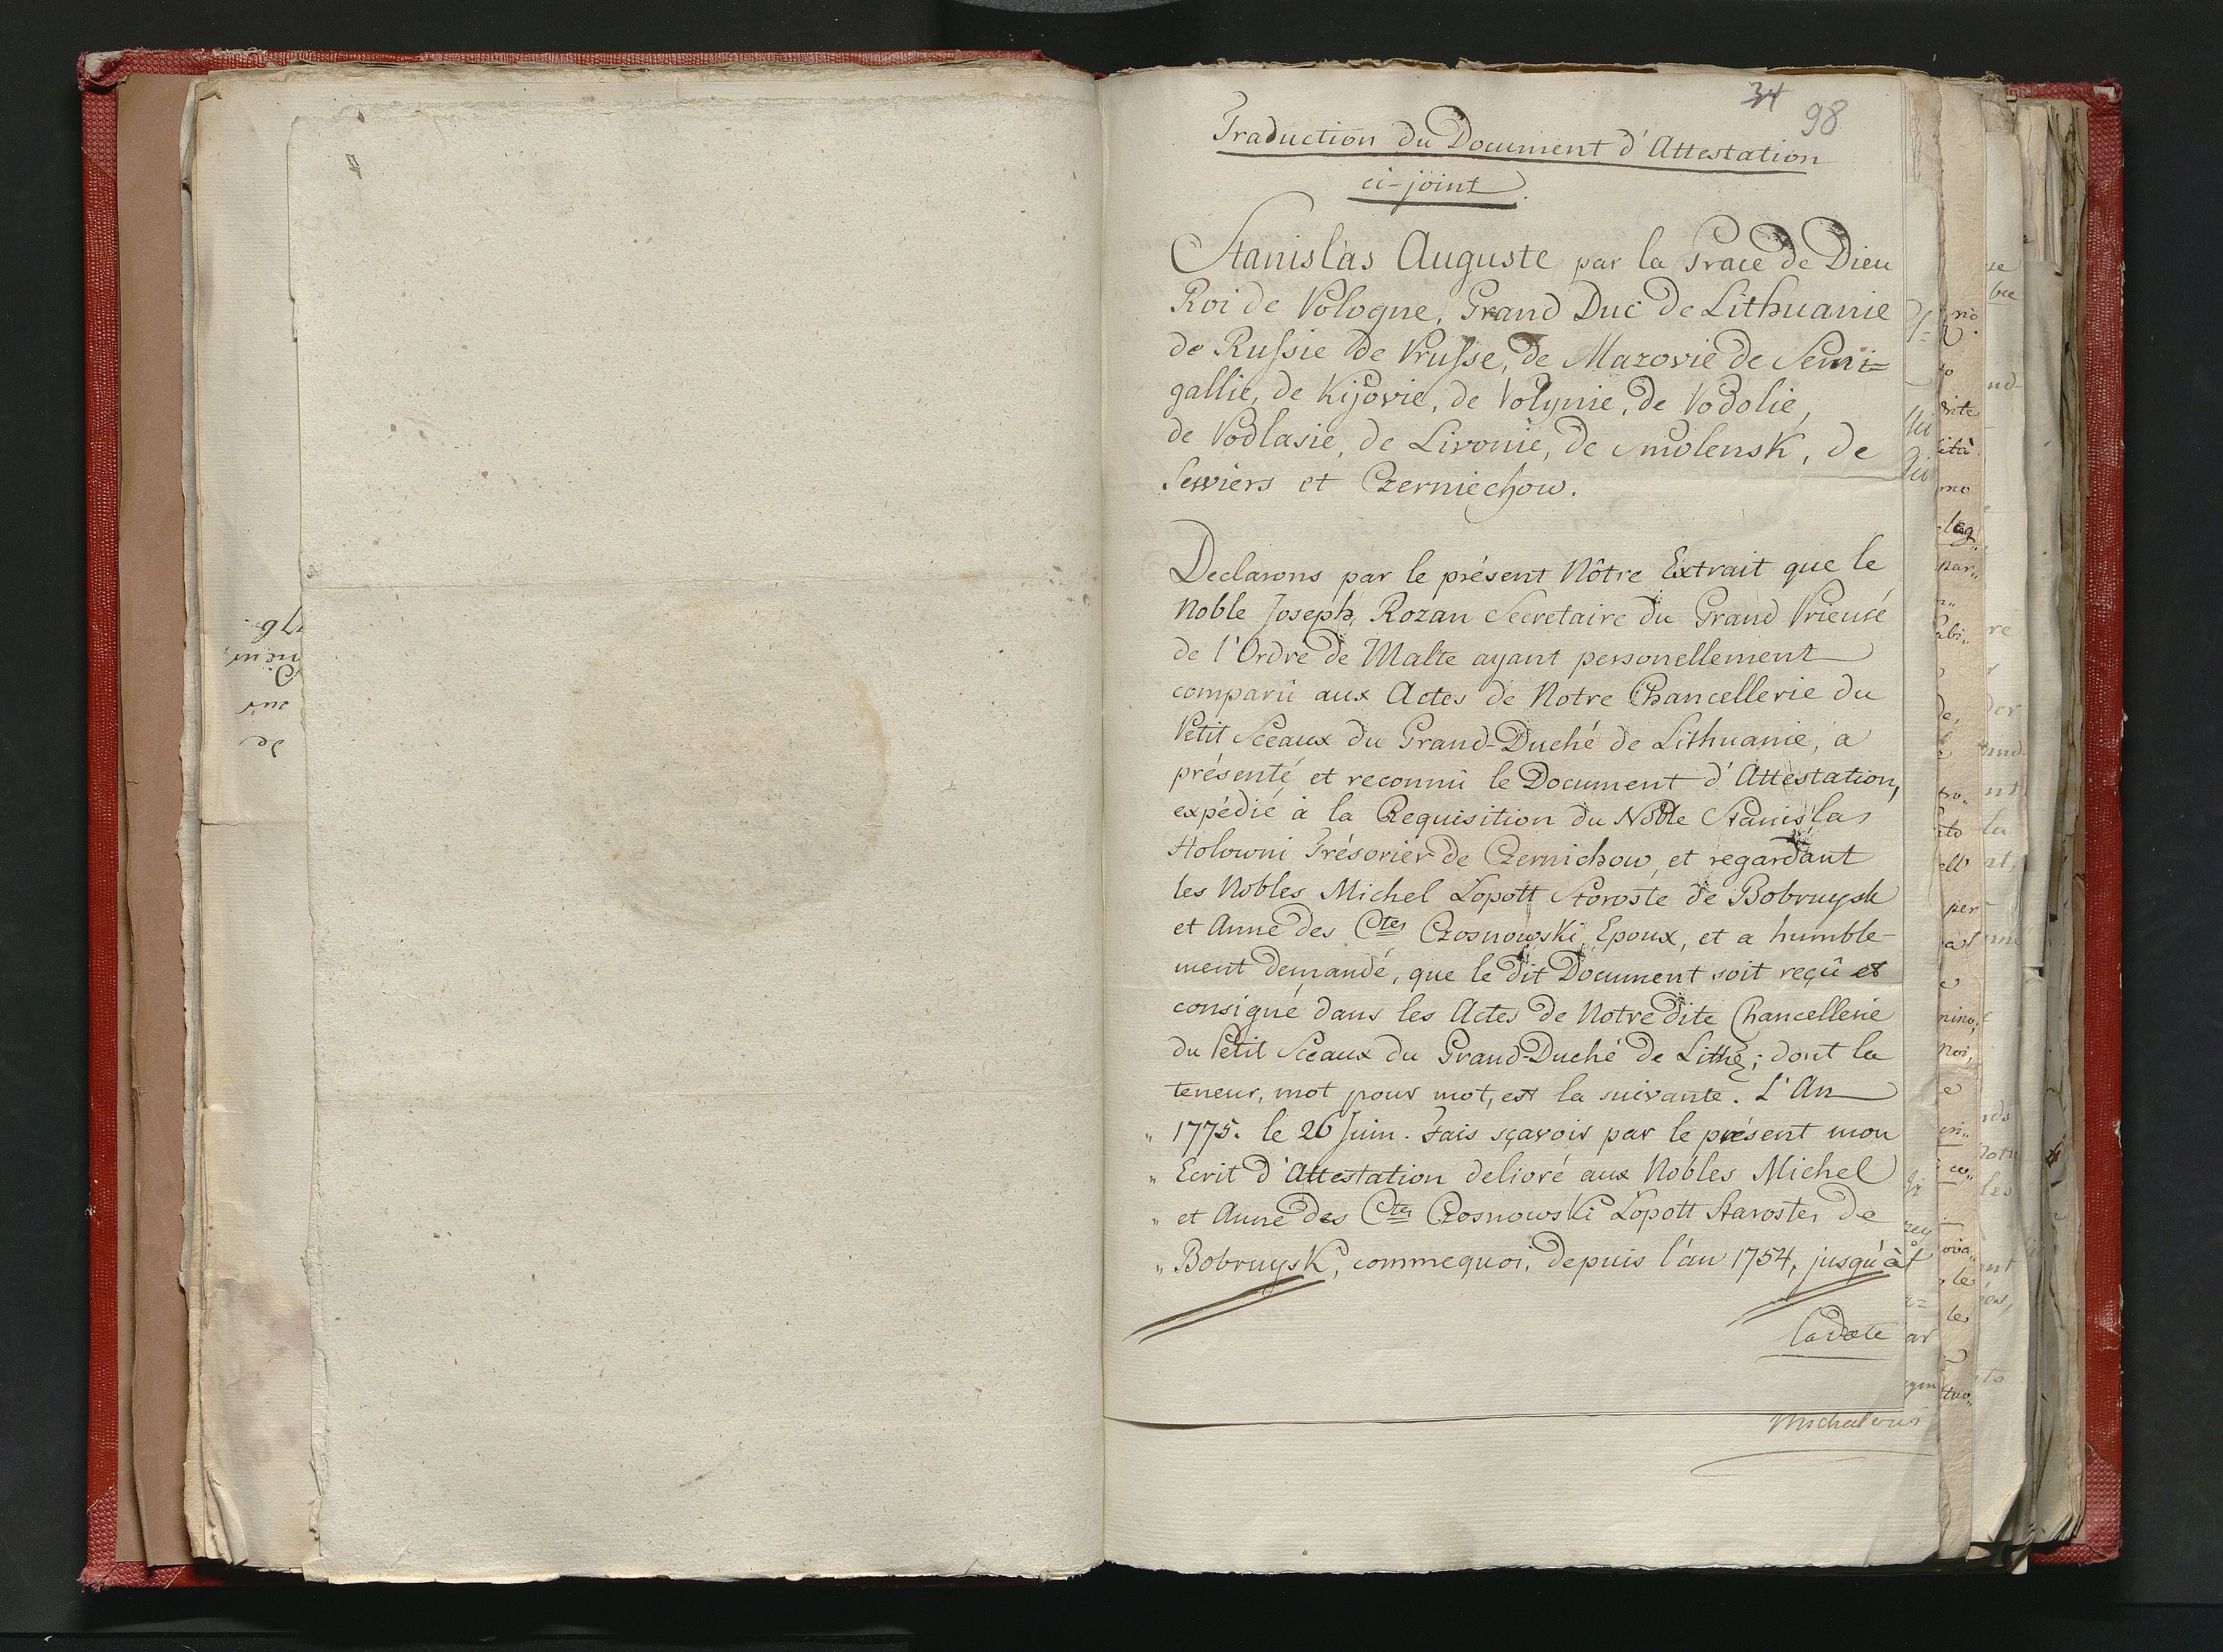 34 98
Traduction du Document d'Attestation
ci-joint
Stanislas Auguste par la Grace de Dieu
Roi de Pologne, Grand Duc de Lithuanie
de Russie de Prusse, de Mazovie de Semi=
gallie, de Kijovie, de Volynie, de Podolie,
de Podlasie, de Livonie, de Smolensk, de
Sewiers et Czerniechow.
Declarons par le présent Nôtre Extrait que le
Noble Joseph Rozan Secretaire du Grand Prieuré
de l'Ordre de Malte ayant personellement
comparû aux Actes de Notre Chancellerie du
Petit Sceaux du Grand-Duché de Lithuanie, a
présenté et reconnû le Document d'Attestation,
expédié à la Requisition du Noble Stanislas
Holowni Trésorier de Czernichow, et regardant
les Nobles Michel Lopott Staroste de Bobruysk
et Anne des Ctes Czosnowski Epoux, et a humble-
ment demandé, que le dit Document soit reçû et
consigné dans les Actes de Notre dite Chancellerie
du Petit Sceaux du Grand-Duché de Lithe; dont la
teneur, mot pour mot, est la suivante. L'An
" 1775. le 26 Juin. Fais sçavoir par le présent mon
" Ecrit d'Attestation delivré aux Nobles Michel
" et Anne des Ctes Czosnowski Lopott Starostes de
" Bobruysk, commequoi, depuis l'an 1754, jusqu'à
la date